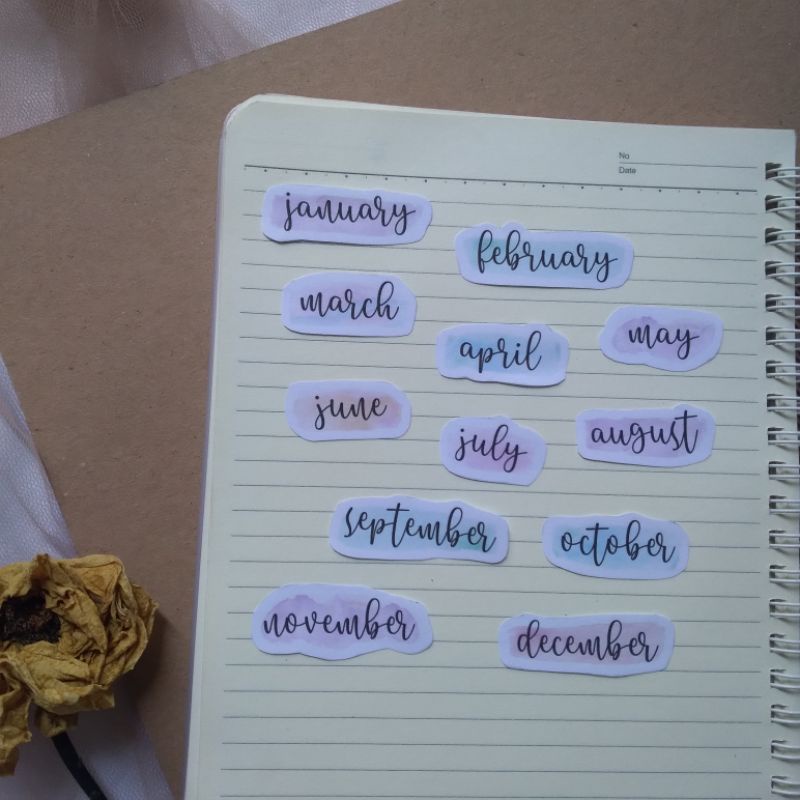 No
Date
january
february
march
april
may
june
july
august
september
october
november
december